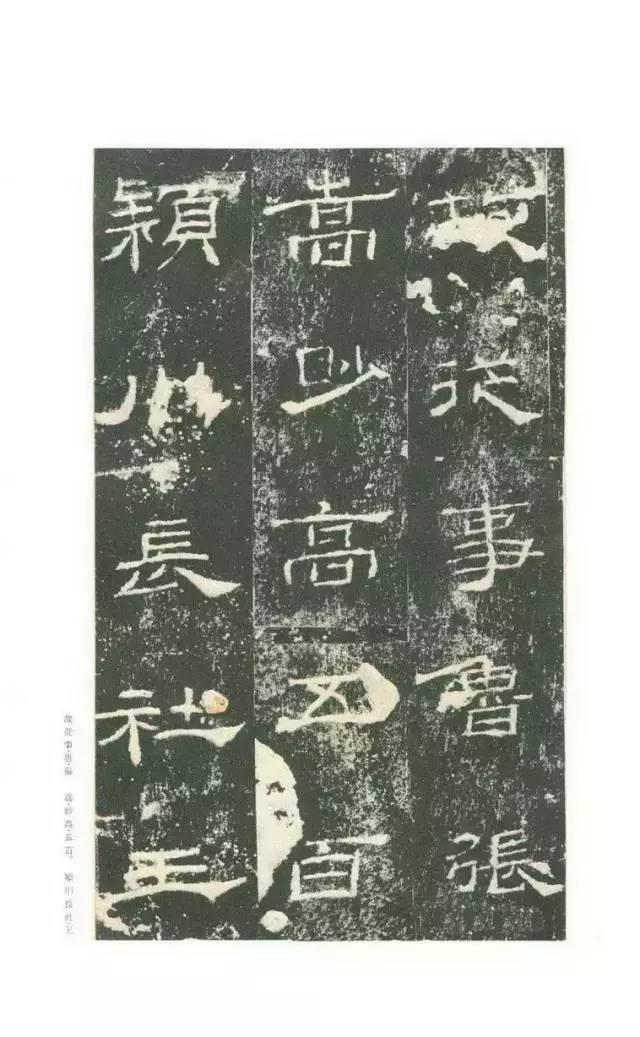 故從事魯張
嵩眇高五百
潁川長社王
故從事魯張　嵩眇高五百。　潁川長社王